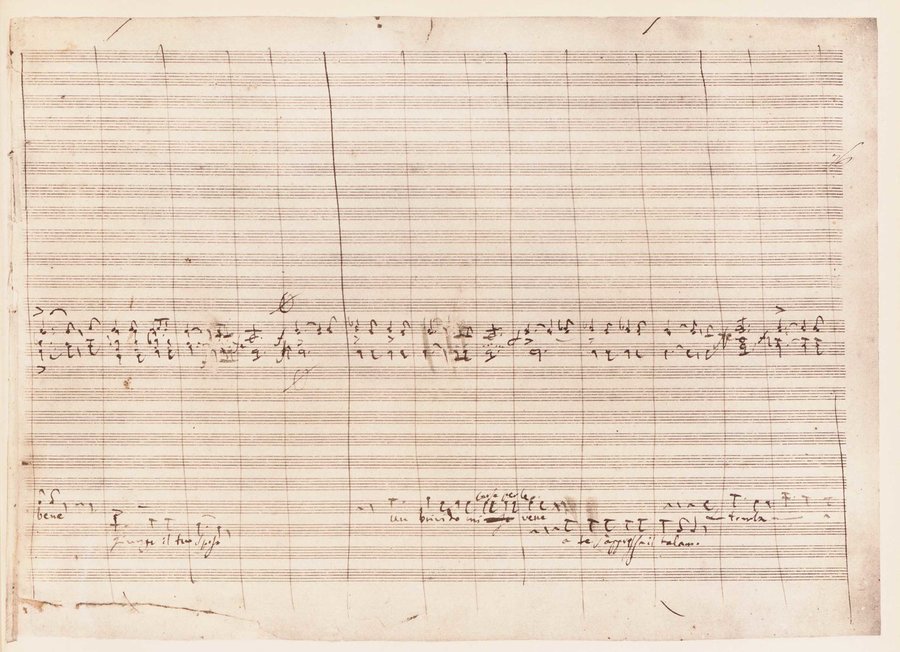 corse per le
bene un brivido mi vene tomba
giunge il tuo sposo a te s'appressa il talamo